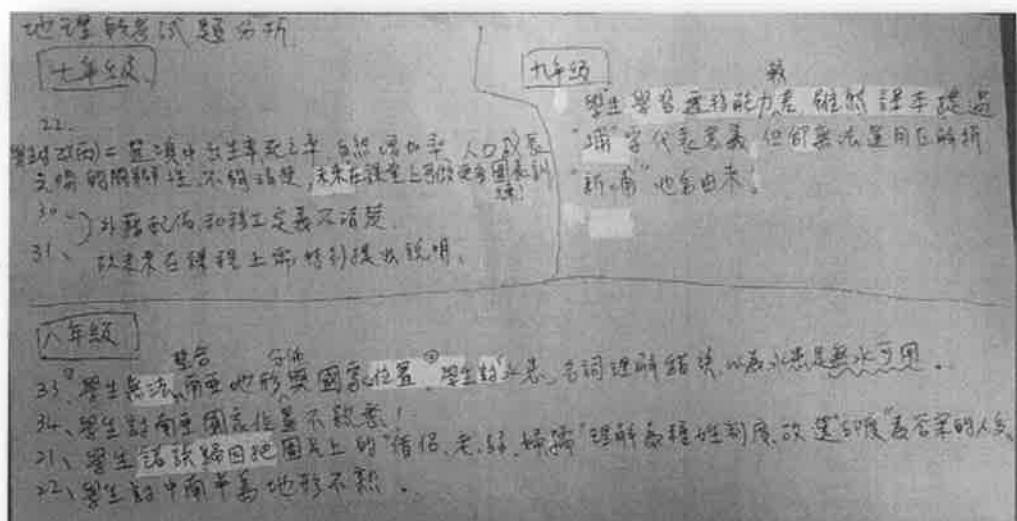 地理段考試題分析
七年級
22.
學生對(丙)二選項中出生率死亡率 自然增加率 人口成長
之間的關聯性不夠清楚,未來在課堂上可做更多圖表訓
練!
30、外籍配偶和移工定義不清楚.
31、故未來在課程上需特別提出說明、
九年級
較
學生學習遷移能力差 雖然課本提過
"埔"字代表意義 但卻無法運用在解析
"新埔"地名由來!
八年級
整合 分佈
33 學生無法南亞地形與國家位置,學生對水患名詞理解錯誤 以為水患是無水可用。
34、學生對南亞國家位置不熟悉!
21、學生錯誤歸因把圖片上的"僧侶.老.師.婦孺"理解為種性制度,故選"印度"為答案的人多
22、學生對中南半島地形不熟。